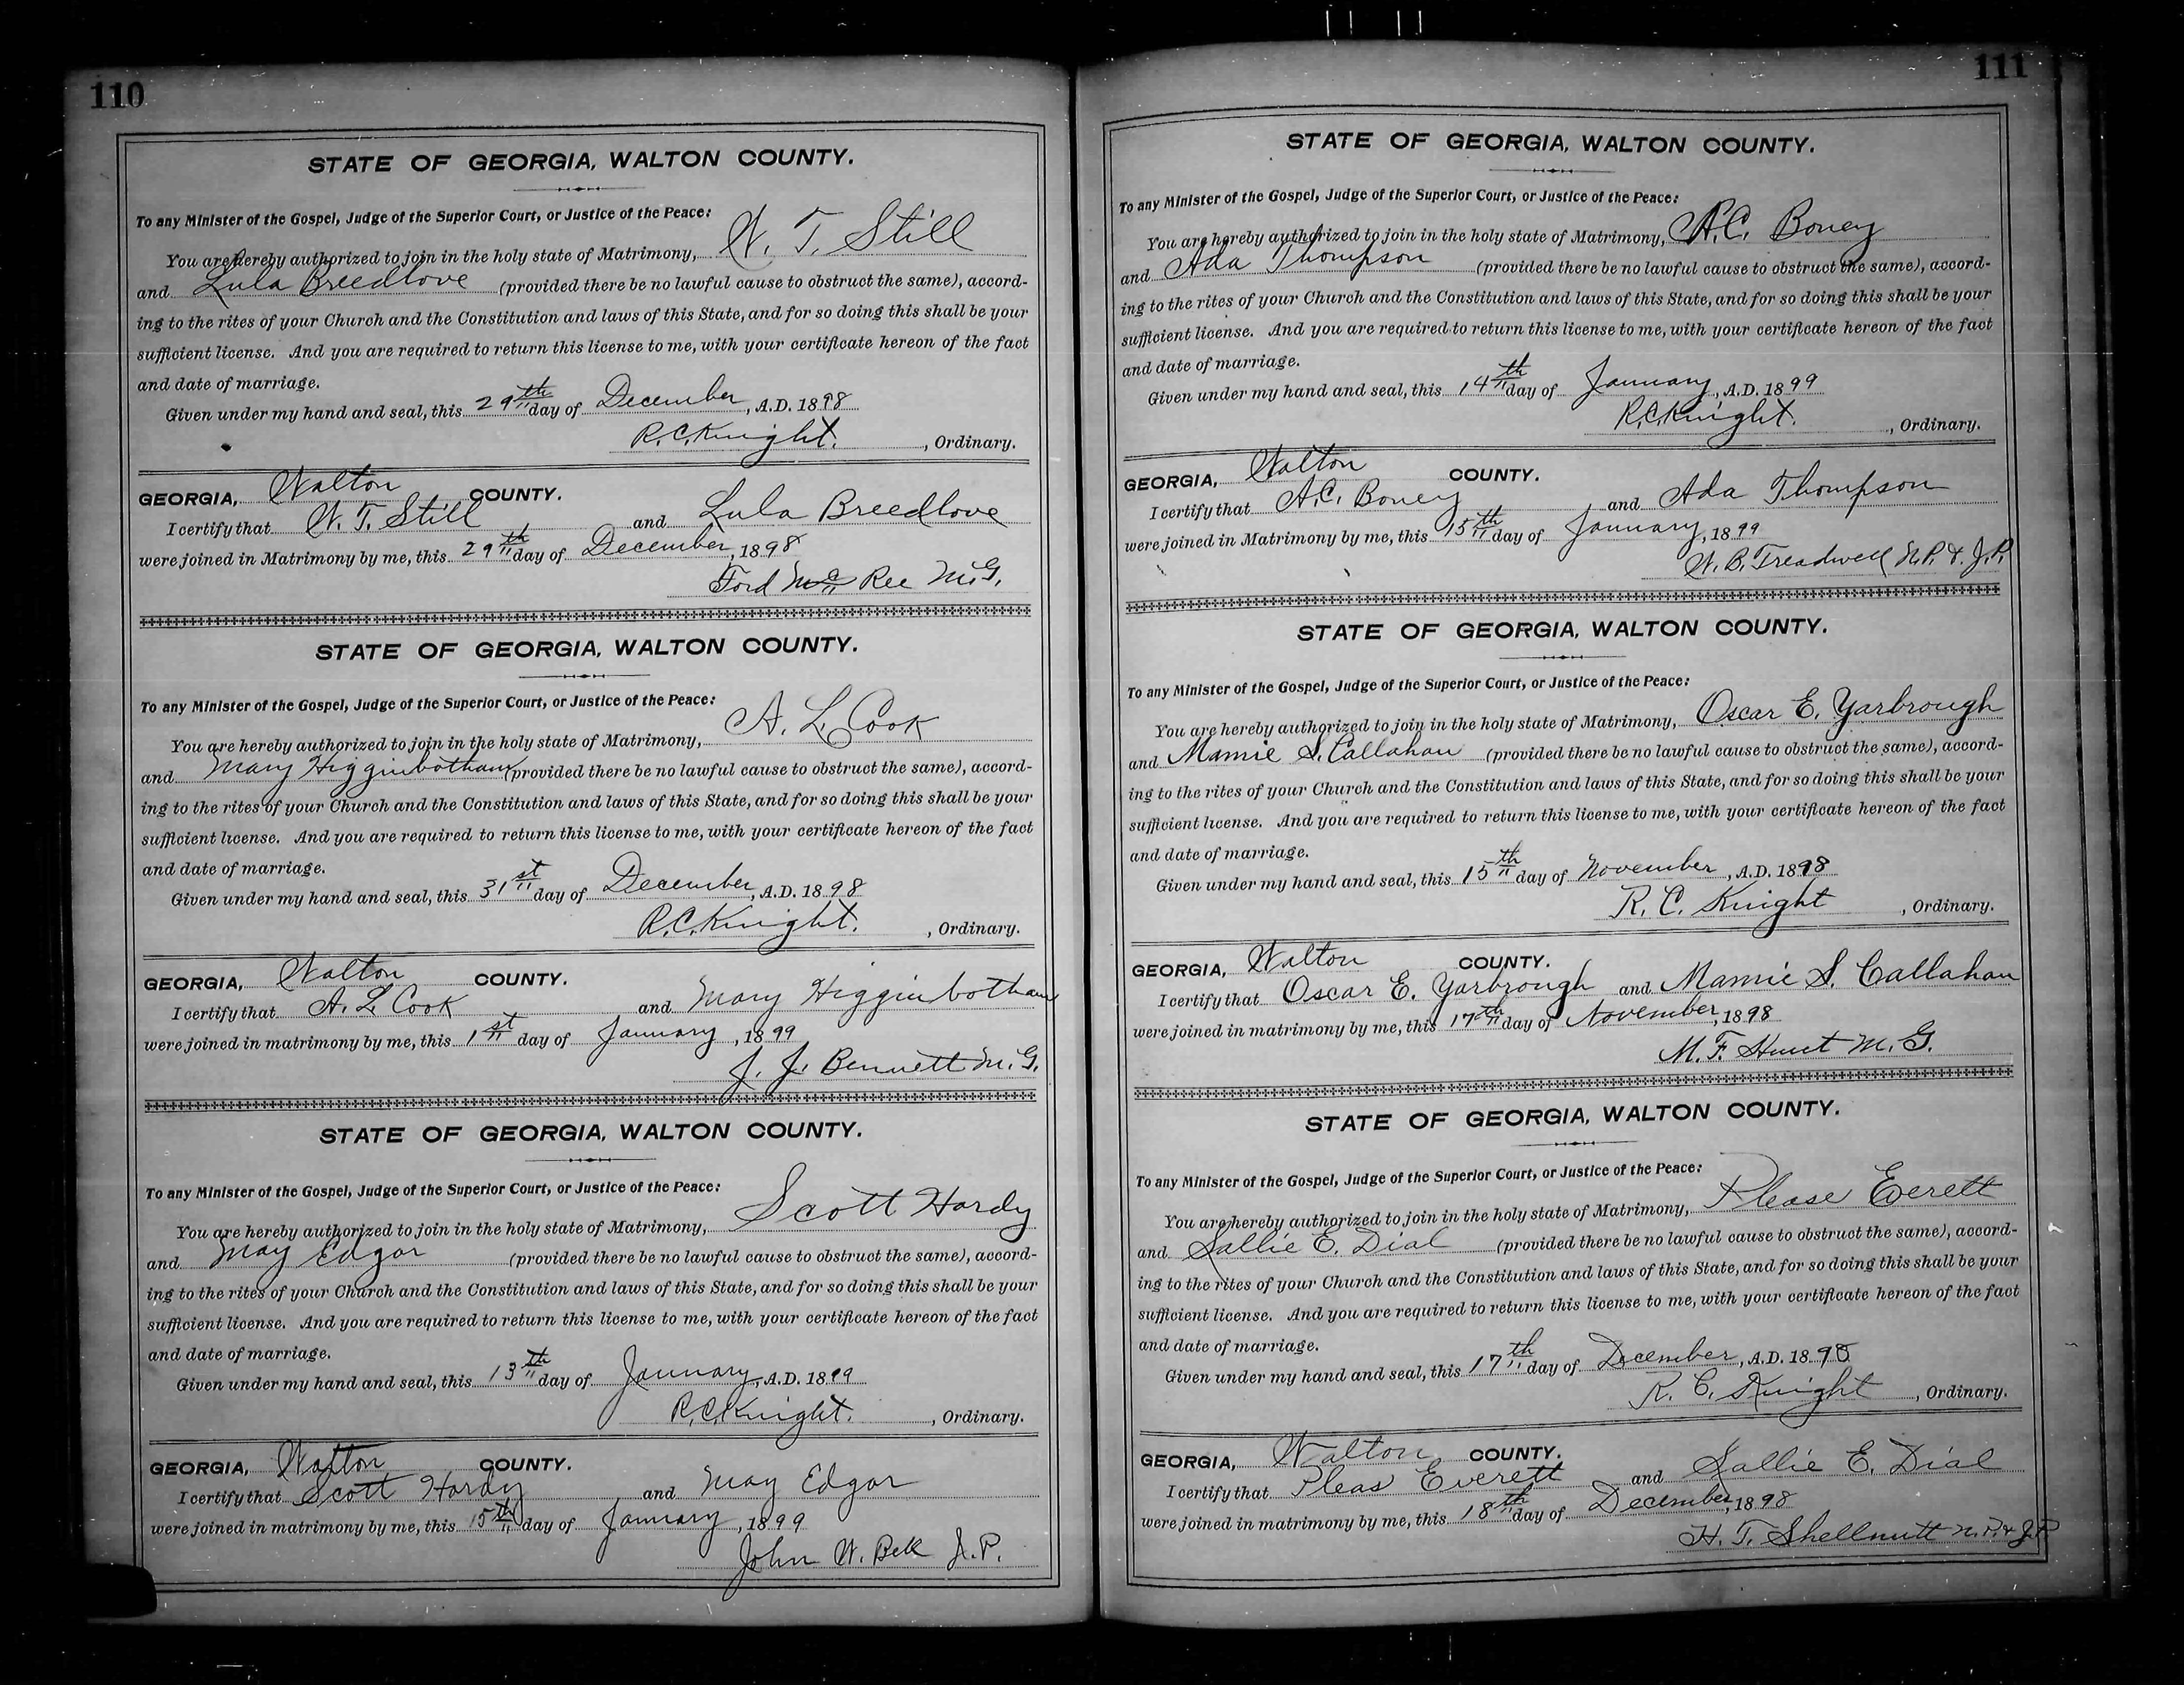 110
STATE OF GEORGIA, WALTON COUNTY.
To any Minister of the Gospel, Judge of the Superior Court, or Justice of the Peace:
You are hereby authorized to join in the holy state of Matrimony, W. T. Still
and Lula Breedlove (provided there be no lawful cause to obstruct the same), accord-
ing to the rites of your Church and the Constitution and laws of this State, and for so doing this shall be your
sufficient license. And you are required to return this license to me, with your certificate hereon of the fact
and date of marriage.
Given under my hand and seal, this 29th day of December, A.D. 1898
R.C. Knight. , Ordinary.
GEORGIA, Walton COUNTY.
I certify that W. T. Still and Lula Breedlove
were joined in Matrimony by me, this 29th day of December, 1898
Ford Mc Ree M.G.
STATE OF GEORGIA, WALTON COUNTY.
To any Minister of the Gospel, Judge of the Superior Court, or Justice of the Peace:
You are hereby authorized to join in the holy state of Matrimony, A. L. Cook
and Mary Higginbotham (provided there be no lawful cause to obstruct the same), accord-
ing to the rites of your Church and the Constitution and laws of this State, and for so doing this shall be your
sufficient license. And you are required to return this license to me, with your certificate hereon of the fact
and date of marriage.
Given under my hand and seal, this 31st day of December, A.D. 1898
R.C. Knight. , Ordinary.
GEORGIA, Walton COUNTY.
I certify that A. L. Cook and Mary Higginbotham
were joined in matrimony by me, this 1st day of January, 1899
J. J. Bennett M.G.
STATE OF GEORGIA, WALTON COUNTY.
To any Minister of the Gospel, Judge of the Superior Court, or Justice of the Peace:
You are hereby authorized to join in the holy state of Matrimony, Scott Hardy
and May Edgar (provided there be no lawful cause to obstruct the same), accord-
ing to the rites of your Church and the Constitution and laws of this State, and for so doing this shall be your
sufficient license. And you are required to return this license to me, with your certificate hereon of the fact
and date of marriage.
Given under my hand and seal, this 13th day of January, A.D. 1899
R.C. Knight. , Ordinary.
GEORGIA, Walton COUNTY.
I certify that Scott Hardy and May Edgar
were joined in matrimony by me, this 15th day of January, 1899
John W. Belk J.P.
111
STATE OF GEORGIA, WALTON COUNTY.
To any Minister of the Gospel, Judge of the Superior Court, or Justice of the Peace:
You are hereby authorized to join in the holy state of Matrimony, A.C. Boney
and Ada Thompson (provided there be no lawful cause to obstruct the same), accord-
ing to the rites of your Church and the Constitution and laws of this State, and for so doing this shall be your
sufficient license. And you are required to return this license to me, with your certificate hereon of the fact
and date of marriage.
Given under my hand and seal, this 14th day of January, A.D. 1899
R.C. Knight. , Ordinary.
GEORGIA, Walton COUNTY.
I certify that A.C. Boney and Ada Thompson
were joined in Matrimony by me, this 15th day of January, 1899
W. B. Treadwell N.P. & J.P.
STATE OF GEORGIA, WALTON COUNTY.
To any Minister of the Gospel, Judge of the Superior Court, or Justice of the Peace:
You are hereby authorized to join in the holy state of Matrimony, Oscar E. Yarbrough
and Mamie S. Callahan (provided there be no lawful cause to obstruct the same), accord-
ing to the rites of your Church and the Constitution and laws of this State, and for so doing this shall be your
sufficient license. And you are required to return this license to me, with your certificate hereon of the fact
and date of marriage.
Given under my hand and seal, this 15th day of November, A.D. 1898
R. C. Knight , Ordinary.
GEORGIA, Walton COUNTY.
I certify that Oscar E. Yarbrough and Mamie S. Callahan
were joined in matrimony by me, this 17th day of November, 1898
M. F. Hurst M.G.
STATE OF GEORGIA, WALTON COUNTY.
To any Minister of the Gospel, Judge of the Superior Court, or Justice of the Peace:
You are hereby authorized to join in the holy state of Matrimony, Please Everett
and Sallie E. Dial (provided there be no lawful cause to obstruct the same), accord-
ing to the rites of your Church and the Constitution and laws of this State, and for so doing this shall be your
sufficient license. And you are required to return this license to me, with your certificate hereon of the fact
and date of marriage.
Given under my hand and seal, this 17th day of December, A.D. 1898
R. C. Knight , Ordinary.
GEORGIA, Walton COUNTY.
I certify that Pleas Everett and Sallie E. Dial
were joined in matrimony by me, this 18th day of December, 1898
H. T. Shellnutt N.P. & J.P.